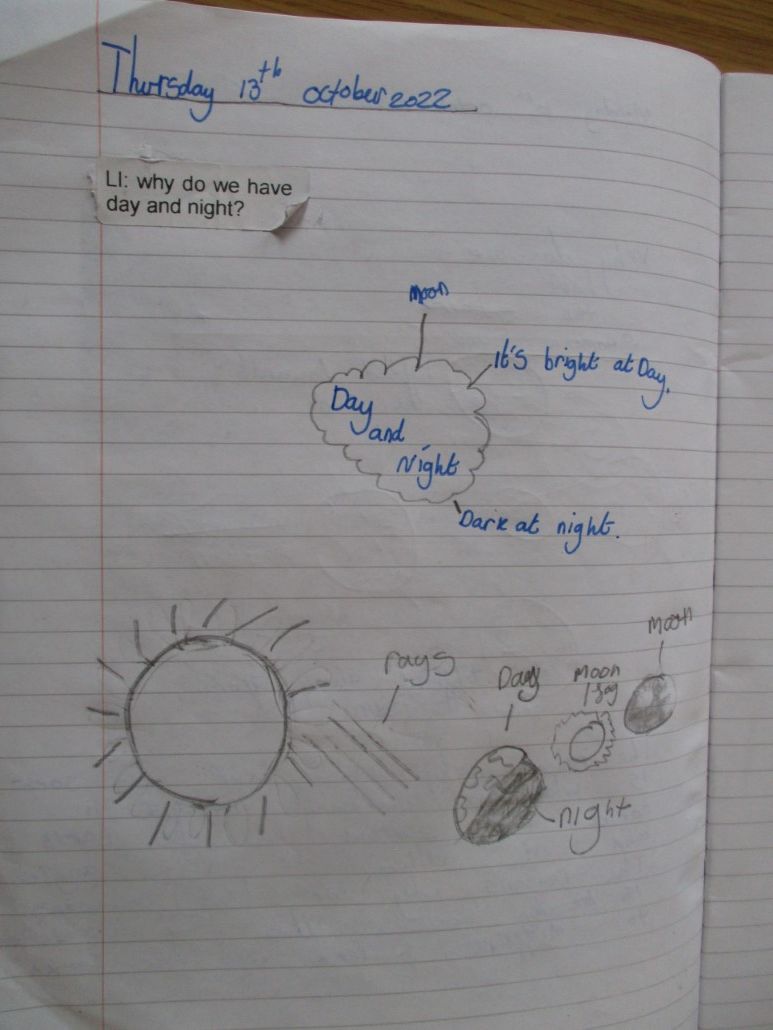 Thursday 13th october 2022
LI: why do we have
day and night?
Moon
It's bright at Day.
Day
and
Night
Dark at night.
Moon
rays
Day
Moon
night